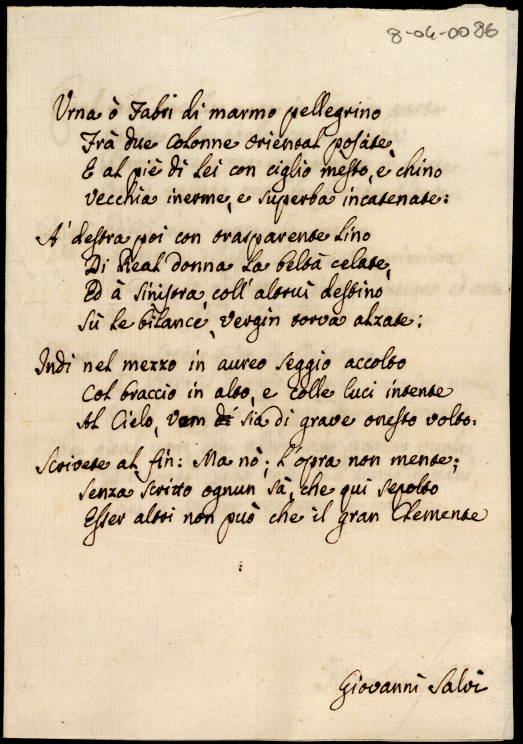 8-04-0086
Urna ò Fabri di marmo pellegrino
Frà due colonne oriental posate,
E al piè di lei con ciglio mesto, e chino
Vecchia inerme, e superba incatenate:
A' destra poi con trasparente lino
Di Real donna la beltà celate,
Ed à sinistra, coll' altrui destino
Sù le bilance, vergin torva alzate:
Indi nel mezzo in aureo seggio accolto
Col braccio in alto, e colle luci intente
Al Cielo, Uom sia di grave onesto volto.
Scrivete al fin: Ma nò; l'opra non mente;
Senza scritto ognun sà, che qui sepolto
Esser altri non può che il gran Clemente
Giovanni Salvi